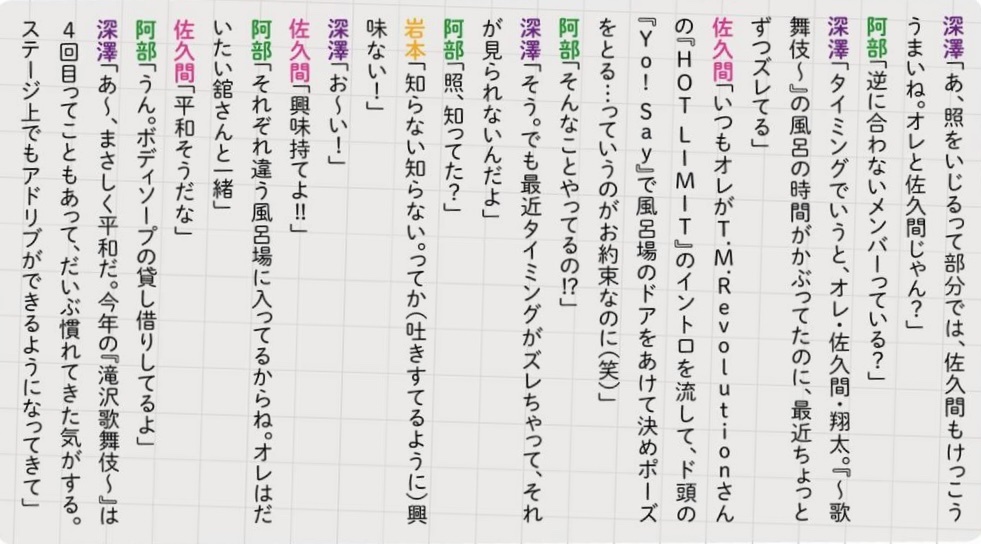 深澤「あ、照をいじるって部分では、佐久間もけっこう
うまいね。オレと佐久間じゃん?」
阿部「逆に合わないメンバーっている?」
深澤「タイミングでいうと、オレ・佐久間・翔太。『〜歌
舞伎〜』の風呂の時間がかぶってたのに、最近ちょっと
ずつズレてる」
佐久間「いつもオレがT.M.Revolutionさん
の『HOT LIMIT』のイントロを流して、ド頭の
『Yo! Say』で風呂場のドアをあけて決めポーズ
をとる…っていうのがお約束なのに(笑)」
阿部「そんなことやってるの!?」
深澤「そう。でも最近タイミングがズレちゃって、それ
が見られないんだよ」
阿部「照、知ってた?」
岩本「知らない知らない。ってか(吐きすてるように)興
味ない!」
深澤「お〜い!」
佐久間「興味持てよ!!」
阿部「それぞれ違う風呂場に入ってるからね。オレはだ
いたい舘さんと一緒」
佐久間「平和そうだな」
阿部「うん。ボディソープの貸し借りしてるよ」
深澤「あ〜、まさしく平和だ。今年の『滝沢歌舞伎〜』は
4回目ってこともあって、だいぶ慣れてきた気がする。
ステージ上でもアドリブができるようになってきて」